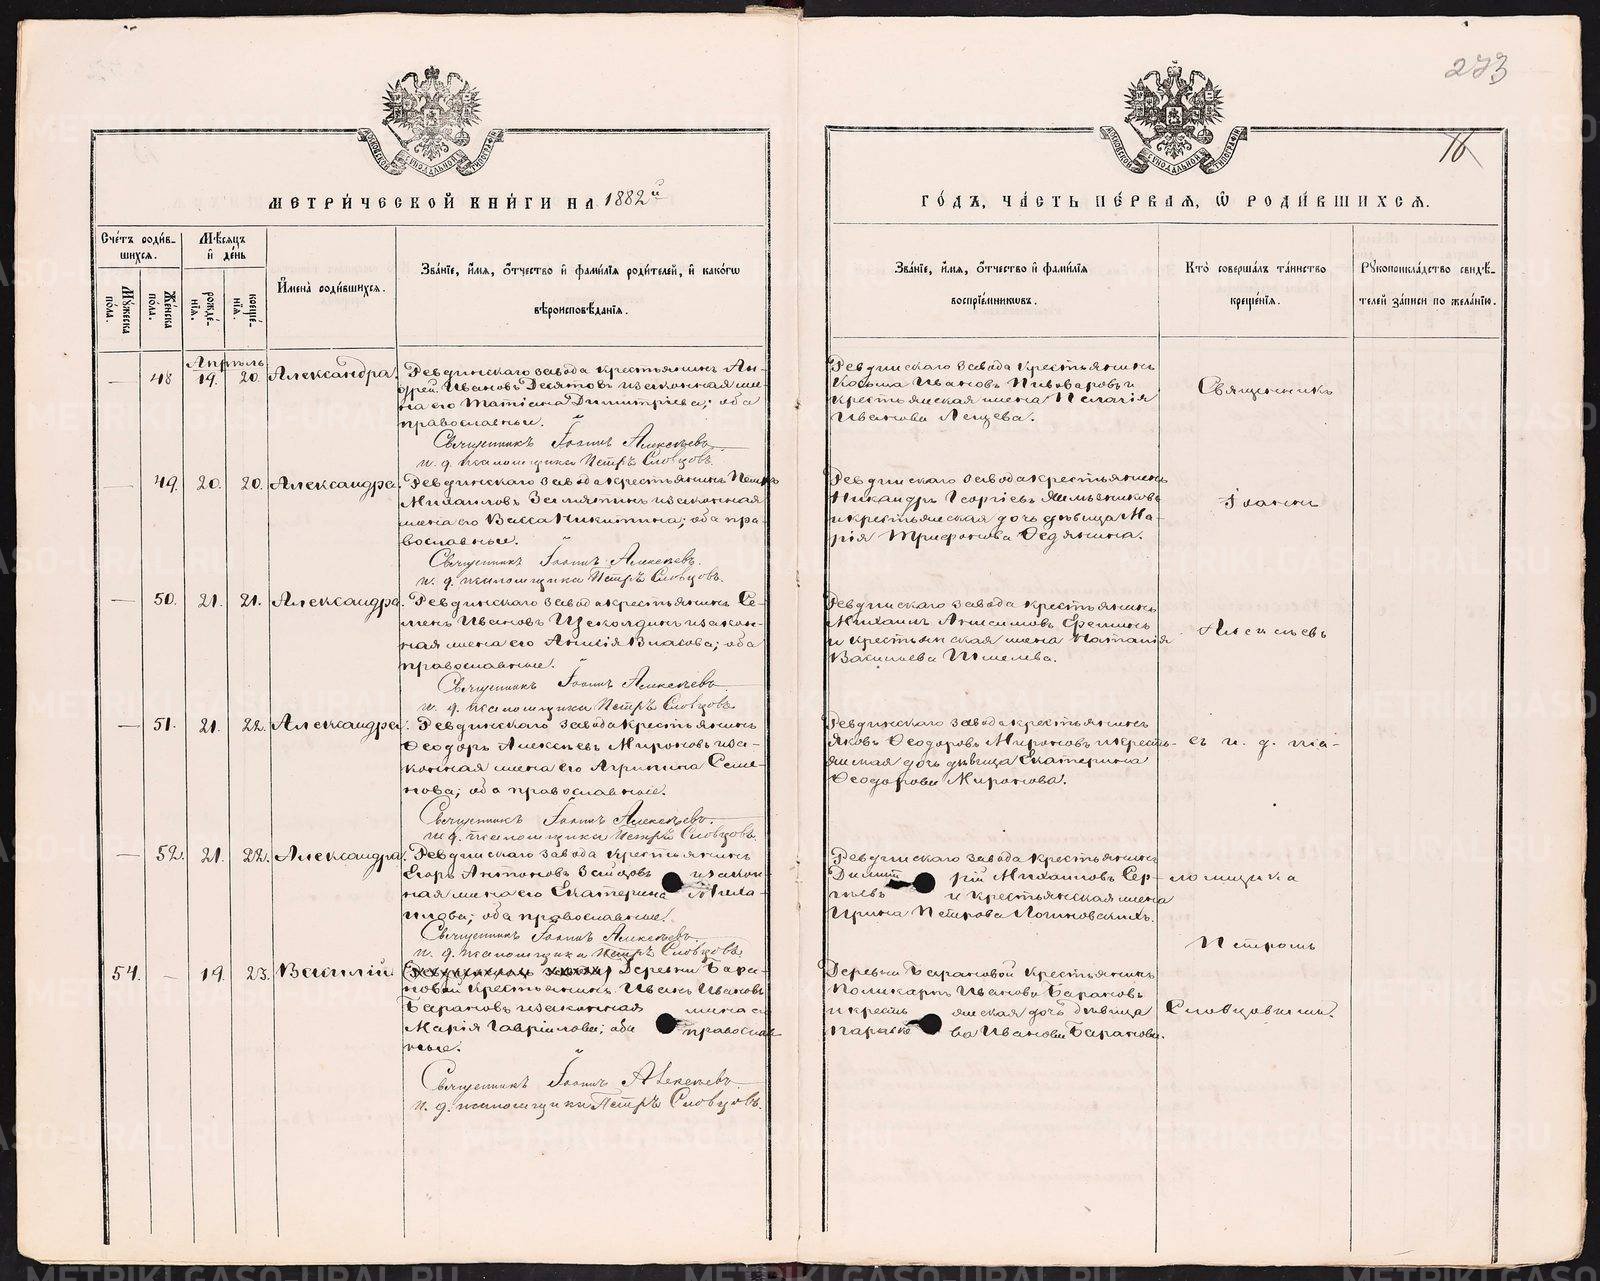 273
16
МЕТРИ́ЧЕСКОЙ КНИ́ГИ НА 1882й
ГО́ДЪ, ЧА́СТЬ ПЕ́РВАЯ, Ѡ РОДИ́ВШИХСЯ.
Сче́тъ роди́в-
шихся.
Мꙋжеска по́ла.
Же́нска по́ла.
Мѣ́сяцъ и де́нь
рожде́нія.
креще́нія.
И҆мена̀ роди́вшихся.
Зва́ніе, и҆́мя, ѻ҆́тчество и҆ фами́лія роди́телей, и҆ како́гѡ
вѣроисповѣ́данія.
Зва́ніе, и҆́мя, ѻ҆́тчество и҆ фами́лія
воспріе́мникѡвъ.
Кто̀ соверша́лъ та́инство
креще́нія.
Рꙋкоприкла́дство свидѣ́-
телей за́писи по жела́нію.
Апрѣль
— 48 19. 20. Александра.
Ревдинскаго завода крестьянинъ Ан-
дрей Ивановъ Десятовъ и законная же-
на его Татіана Димитріева; оба
православные.
Священникъ Іоаннъ Алексѣевъ
и. д. псаломщика Петръ Словцовъ.
Ревдинскаго завода крестьянинъ
Косьма Ивановъ Пивоваровъ и
крестьянская жена Пелагія
Иванова Лещева.
Священникъ
— 49. 20. 20. Александра.
Ревдинскаго завода крестьянинъ Петръ
Михаиловъ Замятинъ и законная
жена его Васса Никитина; оба пра-
вославные.
Священникъ Іоаннъ Алексѣевъ.
и. д. псаломщика Петръ Словцовъ.
Ревдинскаго завода крестьянинъ
Никандръ Георгіевъ
и крестьянская дочь дѣвица Ма-
рія Трифонова Ѳедянина.
Іоаннъ
— 50. 21. 21. Александра.
Ревдинскаго завода крестьянинъ Се-
менъ Ивановъ Щеколдинъ и закон-
ная жена его Анисія Власова; оба
православные.
Священникъ Іоаннъ Алексѣевъ
и. д. псаломщика Петръ Словцовъ
Ревдинскаго завода крестьянинъ
Михаилъ Анисимовъ Ереминъ
и крестьянская жена Наталія
Васильева Шмелева.
Алексѣевъ
— 51. 21. 22. Александра.
Ревдинскаго завода крестьянинъ
Ѳеодоръ Алексѣевъ Мироновъ и за-
конная жена его Агрипина Семе-
нова; оба православные.
Священникъ Іоаннъ Алексѣевъ.
и. д. псаломщика Петръ Словцовъ
Ревдинскаго завода крестьянинъ
Яковъ Ѳеодоровъ Мироновъ и кресть-
янская дочь дѣвица Екатерина
Ѳеодорова Миронова.
съ и. д. пса-
— 52. 21. 22. Александра.
Ревдинскаго завода крестьянинъ
Егоръ Антоновъ Зайцовъ и закон-
ная жена его Екатерина Миха-
илова; оба православные.
Священникъ Іоаннъ Алексѣевъ.
и. д. псаломщика Петръ Словцовъ
Ревдинскаго завода крестьянинъ
Димитрій Михаиловъ Сер-
гѣевъ и крестьянская жена
Ирина Петрова Логиновскихъ.
ломщика
Петромъ
54. — 19. 23. Василій
Деревни Бара-
новой крестьянинъ Иванъ Ивановъ
Барановъ и законная жена его
Марія Гавріилова; оба православ-
ные.
Священникъ Іоаннъ Алексѣевъ
и. д. псаломщика Петръ Словцовъ.
Деревни Барановой крестьянинъ
Поликарпъ Ивановъ Барановъ
и крестьянская дочь дѣвица
Параскева Иванова Баранова.
Словцовымъ.
METRIKI.GASO-URAL.RU